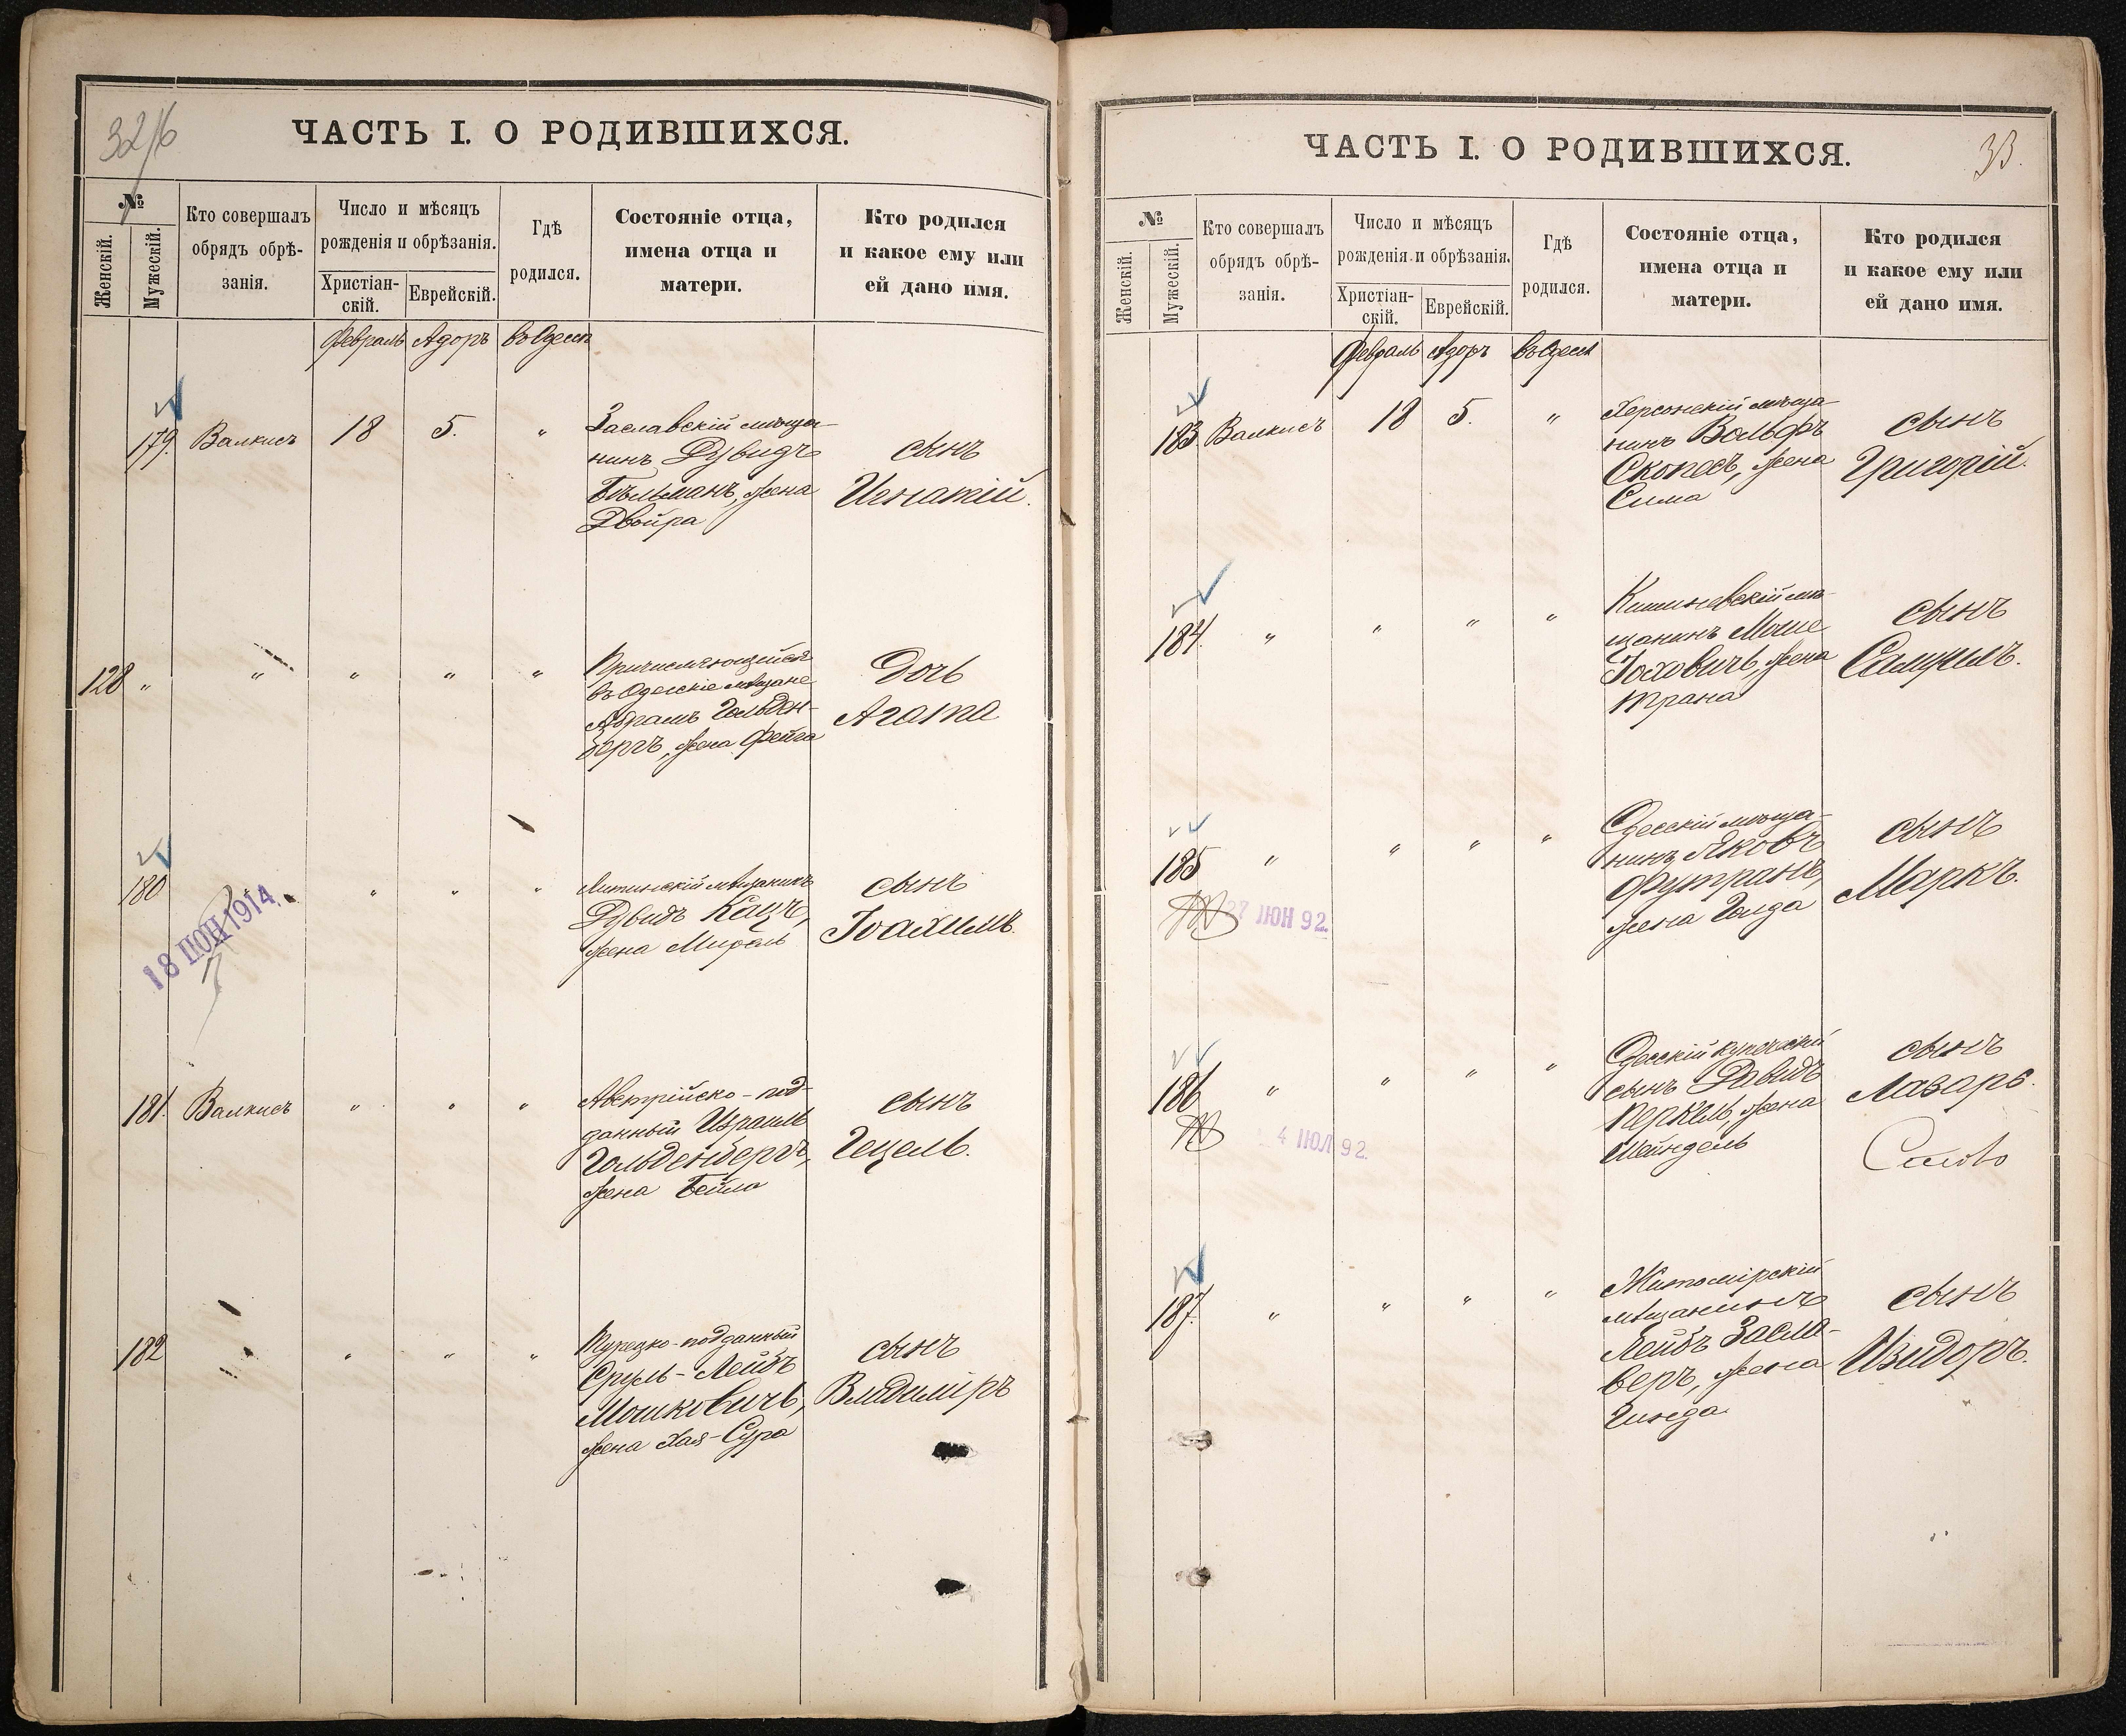 32/16
ЧАСТЬ I. О РОДИВШИХСЯ.
№
Женскій.
Мужескій.
Кто совершалъ
обрядъ обрѣ-
занія.
Число и мѣсяцъ
рожденія и обрѣзанія.
Христіан-
скій.
Еврейскій.
Гдѣ
родился.
Состояніе отца,
имена отца и
матери.
Кто родился
и какое ему или
ей дано имя.
Февраль Адоръ въ Одессѣ
179. Валкисъ 18 5. "
Заславскій мѣща-
нинъ Дувидъ
Бѣльманъ, жена
Двойра
сынъ
Игнатій.
128 " " " " "
Причисляющійся
въ Одесскіе мѣщане
Абрамъ Гольден-
бергъ, жена Фейга
Дочь
Агата
180 " " "
18 ІЮН 1914
Литинскій мѣщанинъ
Дувидъ Кацъ,
жена Миралъ
сынъ
Іоахимъ.
181. Валкисъ " " "
Австрійско-под-
данный Израиль
Гольденбергъ,
жена Бейла
сынъ
Гецель.
182 " " "
Турецко-подданный
Сруль-Лейбъ
Мошковичъ,
жена Хая-Сура
сынъ
Владиміръ
33.
ЧАСТЬ I. О РОДИВШИХСЯ.
№
Женскій.
Мужескій.
Кто совершалъ
обрядъ обрѣ-
занія.
Число и мѣсяцъ
рожденія и обрѣзанія.
Христіан-
скій.
Еврейскій.
Гдѣ
родился.
Состояніе отца,
имена отца и
матери.
Кто родился
и какое ему или
ей дано имя.
Февраль Адоръ въ Одессѣ
183 Валкисъ 18 5. "
Херсонскій мѣща-
нинъ Вольфъ
Скопесъ, жена
Сима
сынъ
Григорій.
184. " " " "
Кишиневскій мѣ-
щанинъ Моше
Іосховичъ, жена
Трана
сынъ
Самуилъ.
185 " " " "
27 ІЮН 92.
Одесскій мѣща-
нинъ Яковъ
Футранъ,
жена Голда
сынъ
Маркъ.
186 " " " "
4 ІЮЛ 92.
Одесскій купеческій
сынъ Давидъ
Перкель, жена
Мейндель
сынъ
Лазарь.
187. " " " "
Житомірскій
мѣщанинъ
Лейбъ Засла-
веръ, жена
Гинда
сынъ
Изидоръ.